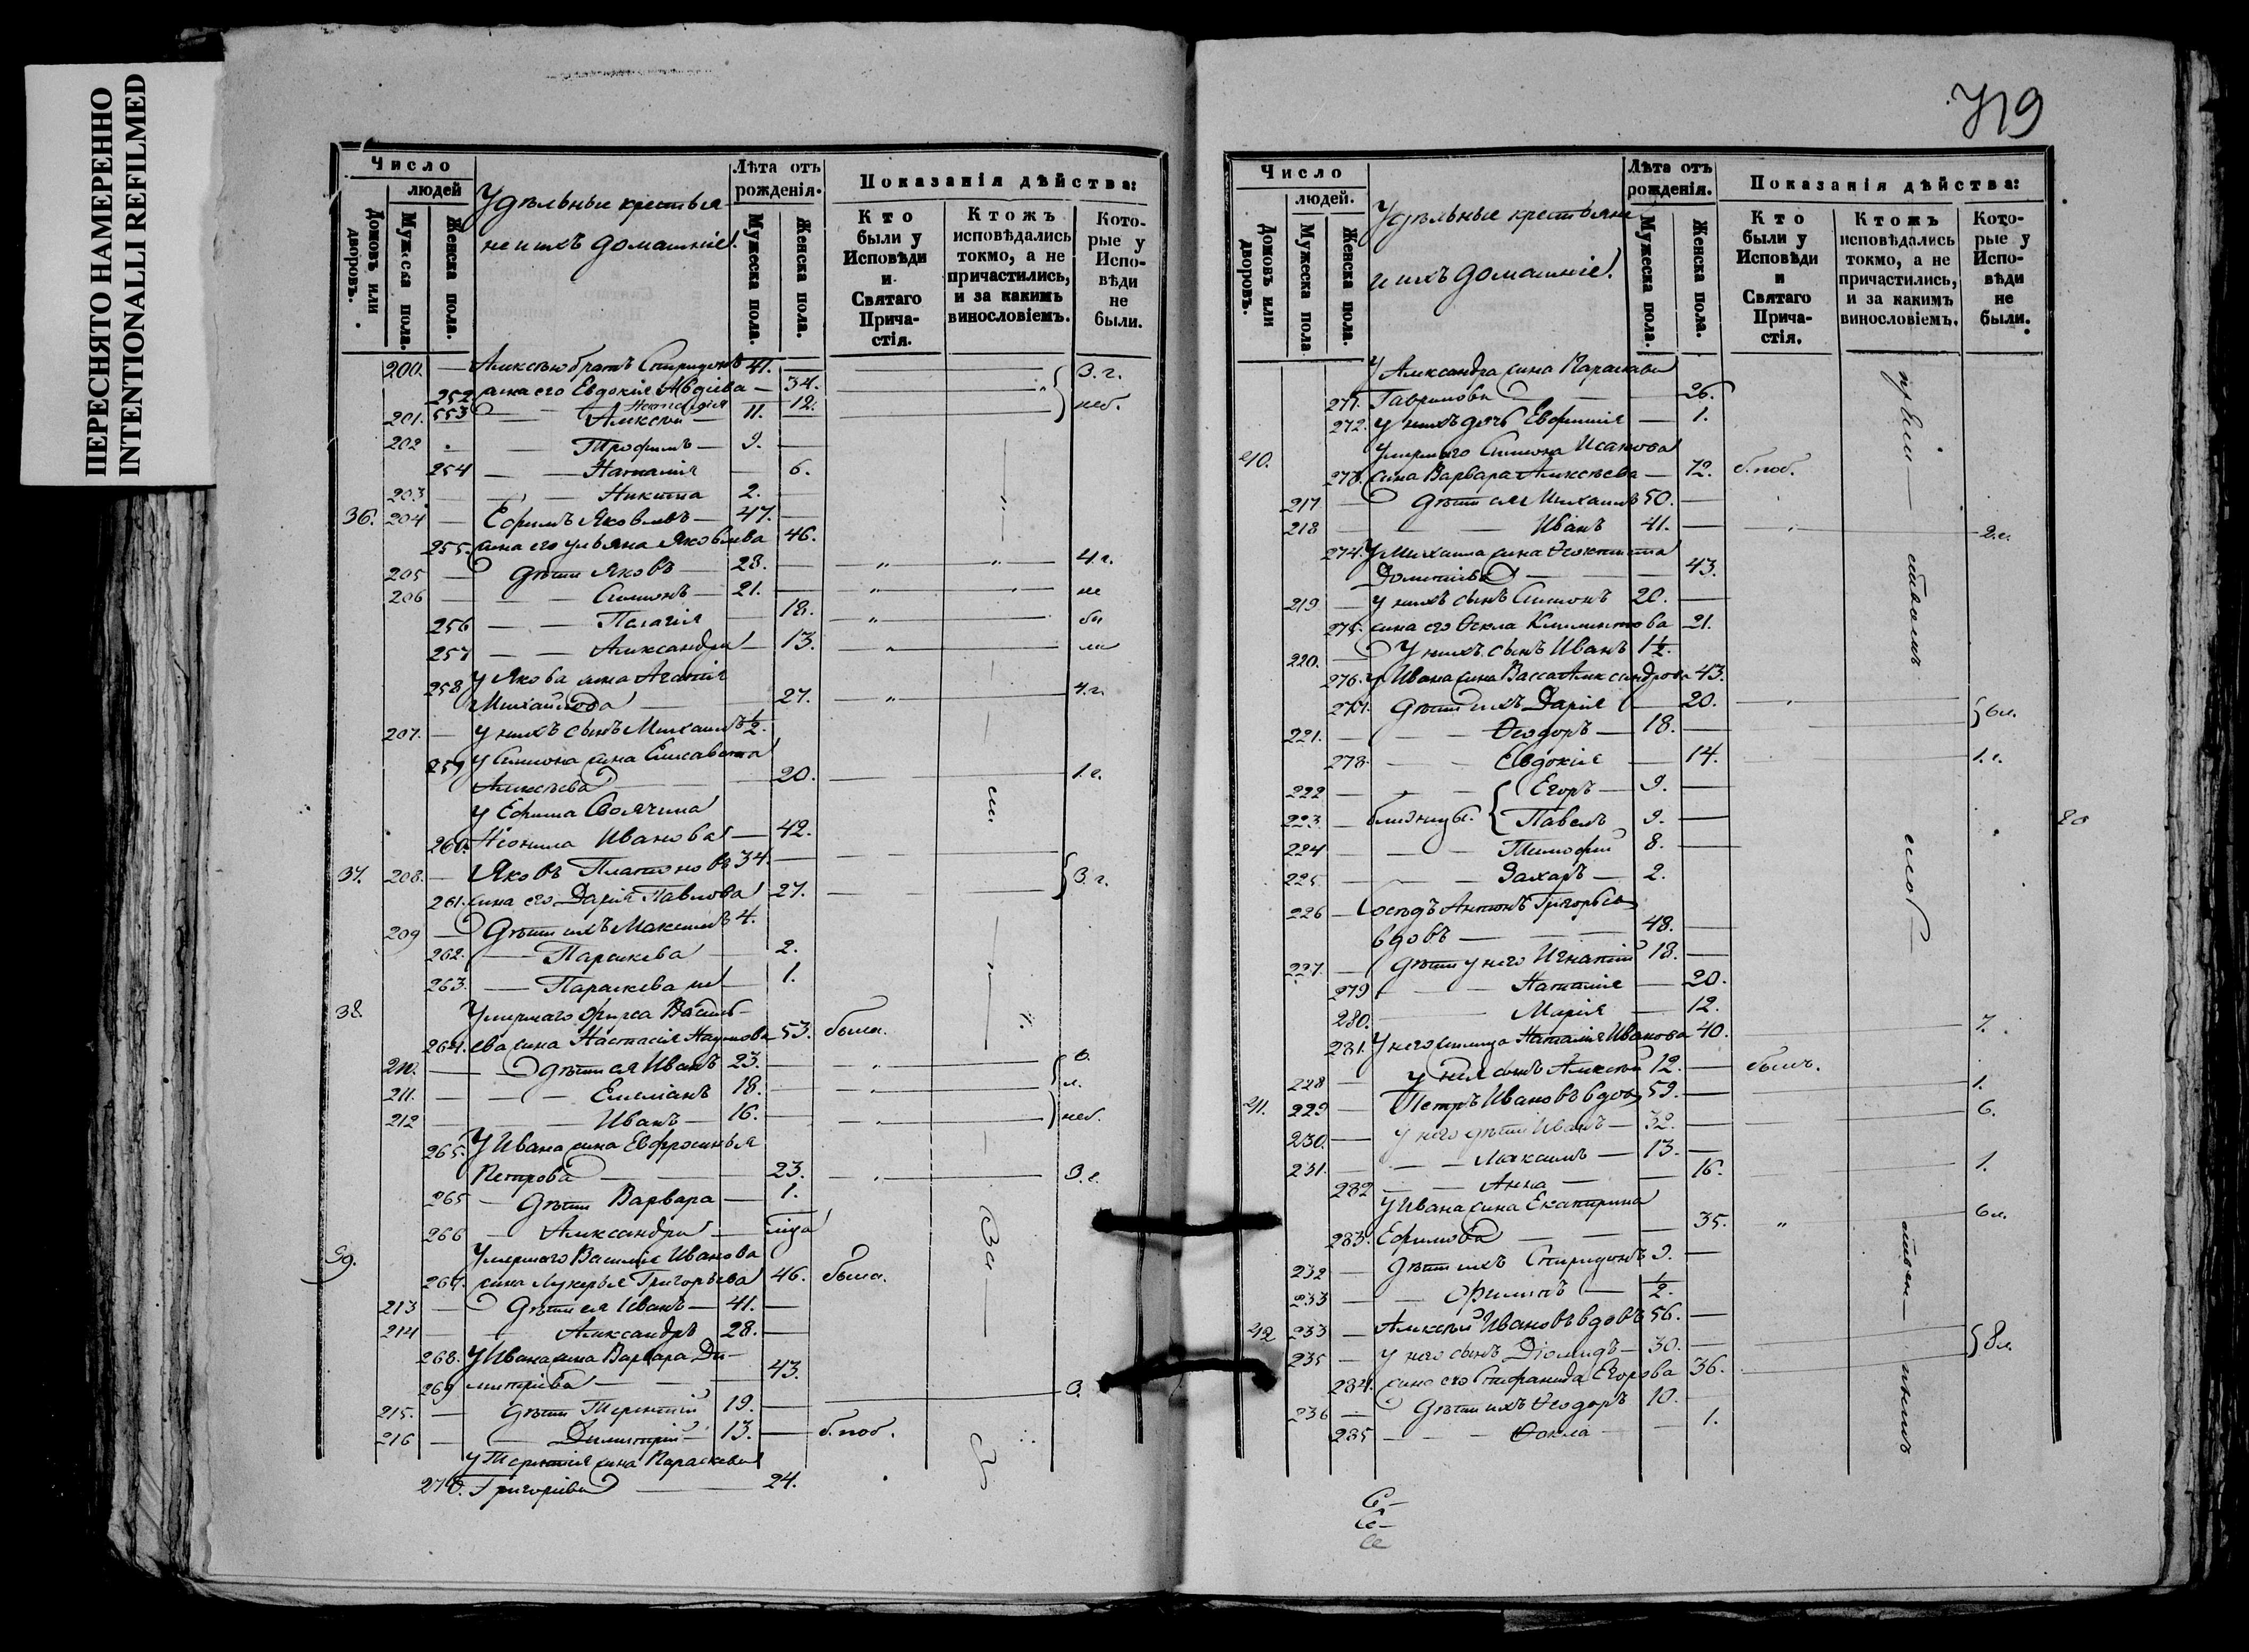 ПЕРЕСНЯТО НАМЕРЕННО
INTENTIONALLI REFILMED
Число
людей
Домовъ или дворовъ.
Мужеска пола.
Женска пола.
Удѣльные крестья
не и ихъ домашніе.
Лѣта отъ рожденія.
Мужеска пола.
Женска пола.
Показанія дѣйства:
Кто были у Исповѣди и Святаго Причастія.
Ктожъ исповѣдались токмо, а не причастились, и за какимъ винословіемъ.
Которые у Исповѣди не были.
200. — Алексѣю братъ Спиридонъ 41. — 3. г.
252. жена его Евдокія Авдіева — 34.
201. 553 — Анастасія 12. неб.
Алексѣй 11.
202 — Трофимъ — 9. —
254 — — Наталія — 6.
203 — — Никита 2.
36. 204 — Ефимъ Яковлевъ — 47. —
255. жена его Ульяна Яковлева 46.
205 — дѣти Яковъ — 28. — „ — „ — 4. г.
206 — — Симеонъ — 21. — „ — не
256 — — Пелагія — 18. — „ — бы
257 — — Александра — 13. — „ — ли
258 У Якова жена Агапія
Михайлова — 27. — „ — 4. г.
207. — У нихъ сынъ Михаилъ ½.
259 У Симеона жена Елисавета
Алексѣева — 20. — 1. г.
У Ефима Своячина
260. Неонила Иванова — 42.
37. 208. — Яковъ Платоновъ 34. —
261. жена его Дарія Павлова 27. — 3. г.
209 — Дѣти ихъ Максимъ 4.
262. — Параскева — 2.
263. — Параскева же — 1.
38. Умершаго Фирса Василь-
264. ева жена Настасія Наумова 53. была.
210. — дѣти ея Иванъ 23. — „
211. — — Емеліанъ 18. — „ — л.
212 — — Иванъ — 16. — „ — неб.
265. У Ивана жена Евфросинья
Петрова — 23. — „ — 3. г.
265 — дѣти Варвара — 1.
266 — Александра —
39. Умершаго Василія Иванова
267. жена Лукерья Григорьева 46. была.
213 — Дѣти ея Иванъ — 41. —
214 — Александръ 28. —
268. У Ивана жена Варвара Ди-
269 митріева — 43. — 3.
215. — дѣти Терентій 19. —
216 — — Димитрій — 13. — б. поб.
У Терентія жена Параскева
270. Григоріева — 24.
719
Число
людей.
Домовъ или дворовъ.
Мужеска пола
Женска пола.
Удѣльные крестьяне
и ихъ домашніе.
Лѣта отъ рожденія.
Мужеска пола.
Женска пола.
Показанія дѣйства:
Кто были у Исповѣди и Святаго Причастія.
Ктожъ исповѣдались токмо, а не причастились, и за какимъ винословіемъ.
Которые у Исповѣди не были.
У Александра жена Параскева
271. Гаврилова — 26.
272. У нихъ дочь Евфимія — 1.
40. Умершаго Симеона Исакова
273. жена Варвара Алексѣева — 72. б. поб.
217 — дѣти ея Михаилъ 50. —
218 — — Иванъ 41. — „ — 2. г.
274. У Михаила жена Ѳеоктиста
Доментіева — 43.
219 — У нихъ сынъ Симеонъ 20. —
275. жена его Ѳекла Климентова 21.
220. — У нихъ сынъ Иванъ 1½.
276. У Ивана жена Васса Александрова 43.
277. дѣти ихъ Дарія — 20. — „
221. — — Ѳеодоръ — 18. — 6 л.
278 — — Евдокія — 14. — 1. г.
222 — — Егоръ — 9. —
223 — близнецы. Павелъ 9. —
224 — — Тимофей 8. —
225 — — Захаръ — 2.
226 — Сосѣдъ Антонъ Григорьевъ
вдовъ — 48. —
227. — дѣти у него Игнатій 18. —
279 — — Наталія — 20.
280. — — Марія — 12.
281. У него Наталія Иванова 40. — 7.
228 — У нея сынъ Алексѣй 12. — былъ.
41. 229 — Петръ Ивановъ вдовъ 59. — 1.
230. — У него дѣти Иванъ — 32. — 6.
231. — — Максимъ — 13. —
282 — — Анна — 16. — 1.
У Ивана жена Екатерина
283. Ефимова — 35. „ — 6 л.
232 — дѣти ихъ Спиридонъ 9. —
233 — — Филипъ — ½.
42 233 — Алексѣй Ивановъ вдовъ 56. —
235 — У него сынъ Діомидъ — 30. — 8 л.
284. жена его Стефанида Егорова 36.
236 — Дѣти ихъ Ѳеодоръ 10. —
285 — — Ѳекла — 1.